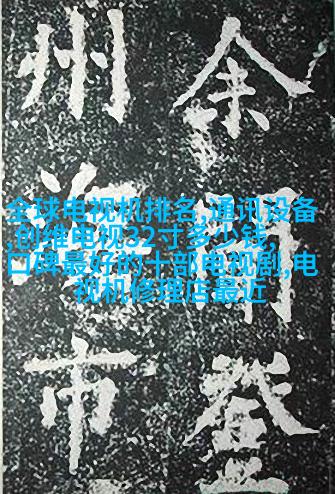 余聞登
州海市
全球电视机排名,通讯设备
,创维电视32寸多少钱,
口碑最好的十部电视剧,电
视机修理店最近